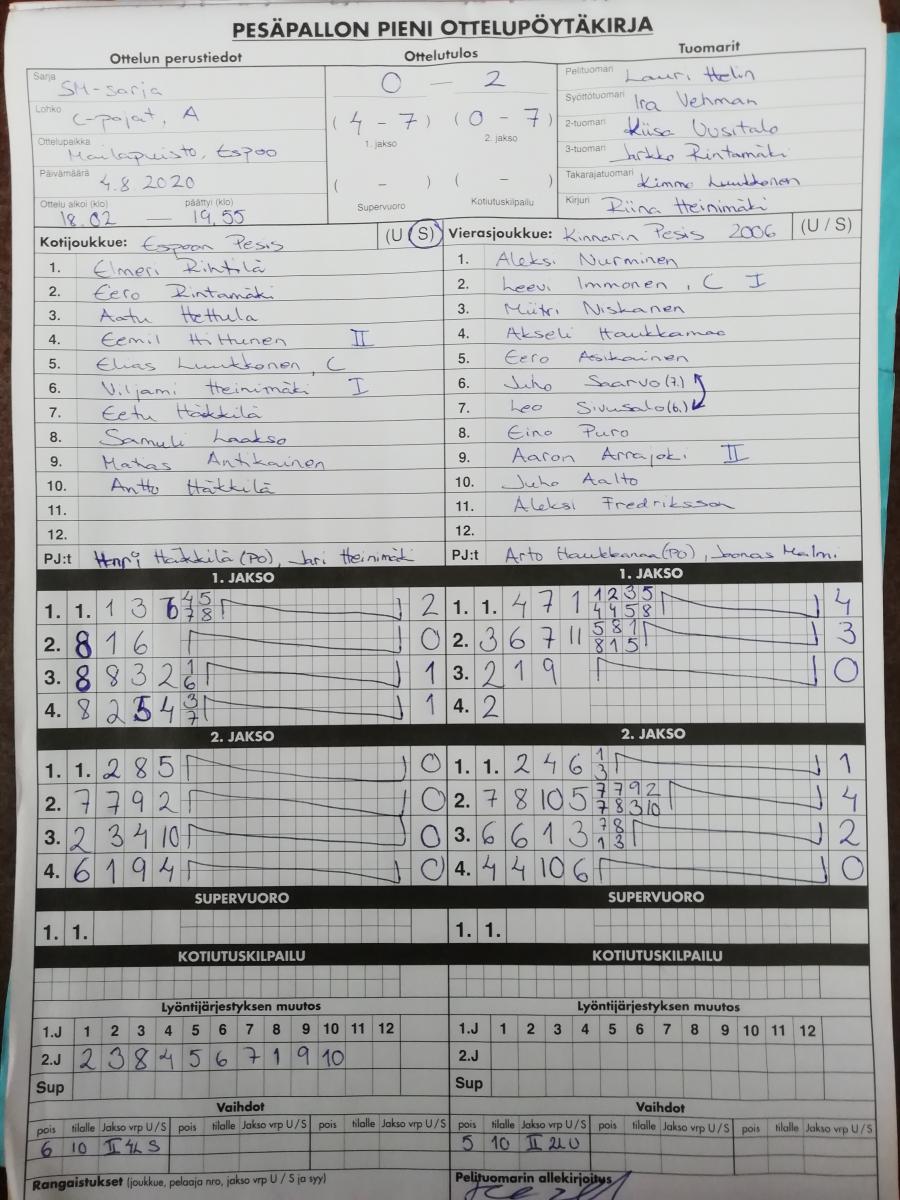 PESÄPALLON PIENI OTTELUPÖYTÄKIRJA
Ottelun perustiedot Ottelutulos Tuomarit
Sarja SM-sarja
Lohko C-pojat, A
Ottelupaikka Mailapuisto, Espoo
Päivämäärä 4.8.2020
Ottelu alkoi (klo) päättyi (klo)
18.02 — 19.55
0 — 2
( 4 - 7 ) ( 0 - 7 )
1. jakso 2. jakso
( - ) ( - )
Supervuoro Kotiutuskilpailu
Pelituomari Lauri Helin
Syöttötuomari Ira Vehman
2-tuomari Kiisa Uusitalo
3-tuomari Jarkko Rintamäki
Takarajatuomari Kimmo Luukkonen
Kirjuri Riina Heinimäki
Kotijoukkue: Espoon Pesis (U / S)
1. Elmeri Rihtilä
2. Eero Rintamäki
3. Aatu Hettula
4. Eemil Hittunen II
5. Elias Luukkonen, C
6. Viljami Heinimäki I
7. Eetu Häkkilä
8. Samuli Laakso
9. Matias Antikainen
10. Antto Häkkilä
11.
12.
PJ:t Henri Häkkilä (PO), Jari Heinimäki
Vierasjoukkue: Kinnarin Pesis 2006 (U / S)
1. Aleksi Nurminen
2. Leevi Immonen, C I
3. Miitri Niskanen
4. Akseli Haukkamaa
5. Eero Asikainen
6. Juho Saarvo (7.)
7. Leo Sivusalo (6.)
8. Eino Puro
9. Aaron Arrajoki II
10. Juho Aalto
11. Aleksi Fredriksson
12.
PJ:t Arto Haukkamaa (PO), Joonas Malmi
1. JAKSO
1. 1. 1 3 6 4 5 7 8 2
2. 8 1 6 0
3. 8 8 3 2 1 6 1
4. 8 2 5 4 3 7 1
2. JAKSO
1. 1. 2 8 5 0
2. 7 7 9 2 0
3. 2 3 4 10 0
4. 6 1 9 4 0
SUPERVUORO
1. 1.
KOTIUTUSKILPAILU
Lyöntijärjestyksen muutos
1.J 1 2 3 4 5 6 7 8 9 10 11 12
2.J 2 3 8 4 5 6 7 1 9 10
Sup
Vaihdot
pois tilalle Jakso vrp U / S pois tilalle Jakso vrp U / S pois tilalle Jakso vrp U / S
6 10 II 4L S
Rangaistukset (joukkue, pelaaja nro, jakso vrp U / S ja syy)
1. JAKSO
1. 1. 4 7 1 1 2 3 5 4 4 5 8 4
2. 3 6 7 11 5 8 1 8 1 5 3
3. 2 1 9 0
4. 2
2. JAKSO
1. 1. 2 4 6 1 3 1
2. 7 8 10 5 7 7 9 2 7 8 3 10 4
3. 6 6 1 3 7 8 1 3 2
4. 4 4 10 6 0
SUPERVUORO
1. 1.
KOTIUTUSKILPAILU
Lyöntijärjestyksen muutos
1.J 1 2 3 4 5 6 7 8 9 10 11 12
2.J
Sup
Vaihdot
pois tilalle Jakso vrp U / S pois tilalle Jakso vrp U / S pois tilalle Jakso vrp U / S
5 10 II 2L U
Pelituomarin allekirjoitus